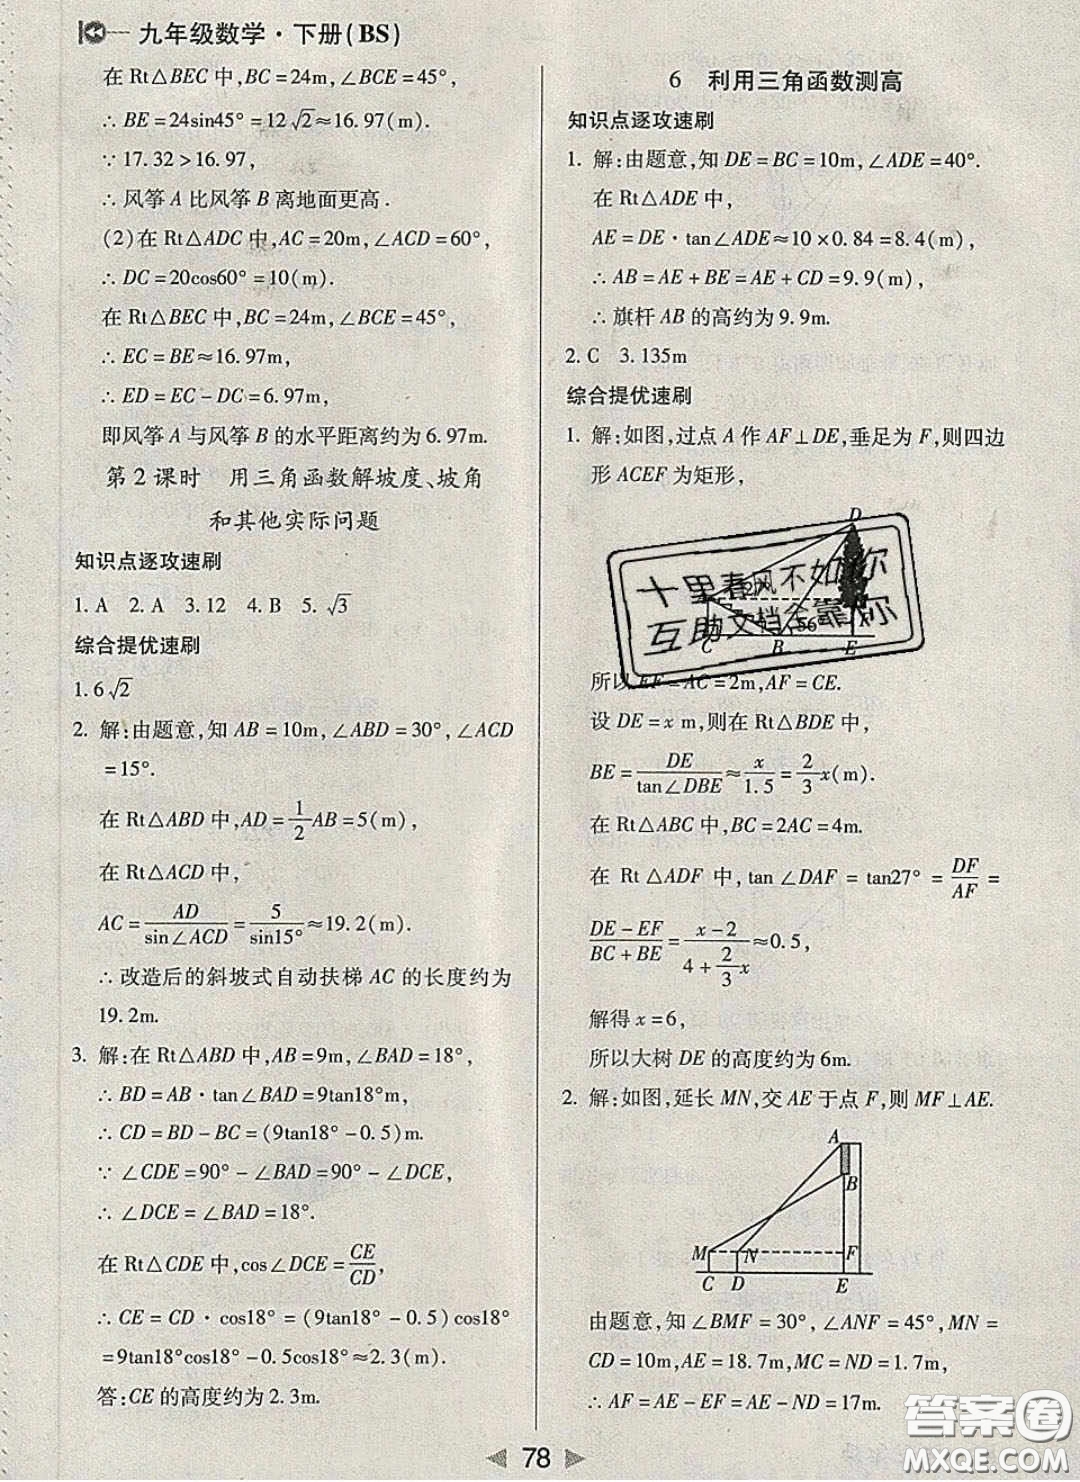 九年级数学·下册(BS)
在 Rt△BEC 中,BC=24m,∠BCE=45°,
∴ BE=24sin45°=12√2≈16.97(m).
∵ 17.32>16.97,
∴ 风筝 A 比风筝 B 离地面更高.
(2)在 Rt△ADC 中,AC=20m,∠ACD=60°,
∴ DC=20cos60°=10(m).
在 Rt△BEC 中,BC=24m,∠BCE=45°,
∴ EC=BE≈16.97m,
∴ ED=EC-DC=6.97m,
即风筝 A 与风筝 B 的水平距离约为 6.97m.
第 2 课时 用三角函数解坡度、坡角
和其他实际问题
知识点逐攻速刷
1. A 2. A 3. 12 4. B 5. √3
综合提优速刷
1. 6√2
2. 解:由题意,知 AB=10m,∠ABD=30°,∠ACD
=15°.
在 Rt△ABD 中,AD=1/2AB=5(m),
在 Rt△ACD 中,
AC=AD/sin∠ACD=5/sin15°≈19.2(m).
∴ 改造后的斜坡式自动扶梯 AC 的长度约为
19.2m.
3. 解:在 Rt△ABD 中,AB=9m,∠BAD=18°,
∴ BD=AB·tan∠BAD=9tan18°(m).
∴ CD=BD-BC=(9tan18°-0.5)m.
∵ ∠CDE=90°-∠BAD=90°-∠DCE,
∴ ∠DCE=∠BAD=18°.
在 Rt△CDE 中,cos∠DCE=CE/CD,
∴ CE=CD·cos18°=(9tan18°-0.5)cos18°
=9tan18°cos18°-0.5cos18°≈2.3(m).
答:CE 的高度约为 2.3m.
6 利用三角函数测高
知识点逐攻速刷
1. 解:由题意,知 DE=BC=10m,∠ADE=40°.
在 Rt△ADE 中,
AE=DE·tan∠ADE≈10×0.84=8.4(m),
∴ AB=AE+BE=AE+CD=9.9(m),
∴ 旗杆 AB 的高约为 9.9m.
2. C 3. 135m
综合提优速刷
1. 解:如图,过点 A 作 AF⊥DE,垂足为 F,则四边
形 ACEF 为矩形,
D
十里春风不如你
互助文档全靠你
C B 56° E
所以 EF=AC=2m,AF=CE.
设 DE=x m,则在 Rt△BDE 中,
BE=DE/tan∠DBE≈x/1.5=2/3x(m).
在 Rt△ABC 中,BC=2AC=4m.
在 Rt△ADF 中,tan∠DAF=tan27°=DF/AF=
DE-EF/BC+BE=x-2/4+2/3x≈0.5,
解得 x=6,
所以大树 DE 的高度约为 6m.
2. 解:如图,延长 MN,交 AE 于点 F,则 MF⊥AE.
A
B
M N F
C D E
由题意,知∠BMF=30°,∠ANF=45°,MN=
CD=10m,AE=18.7m,MC=ND=1.7m,
∴ AF=AE-EF=AE-ND=17m.
78
答案圈
MXQE.COM